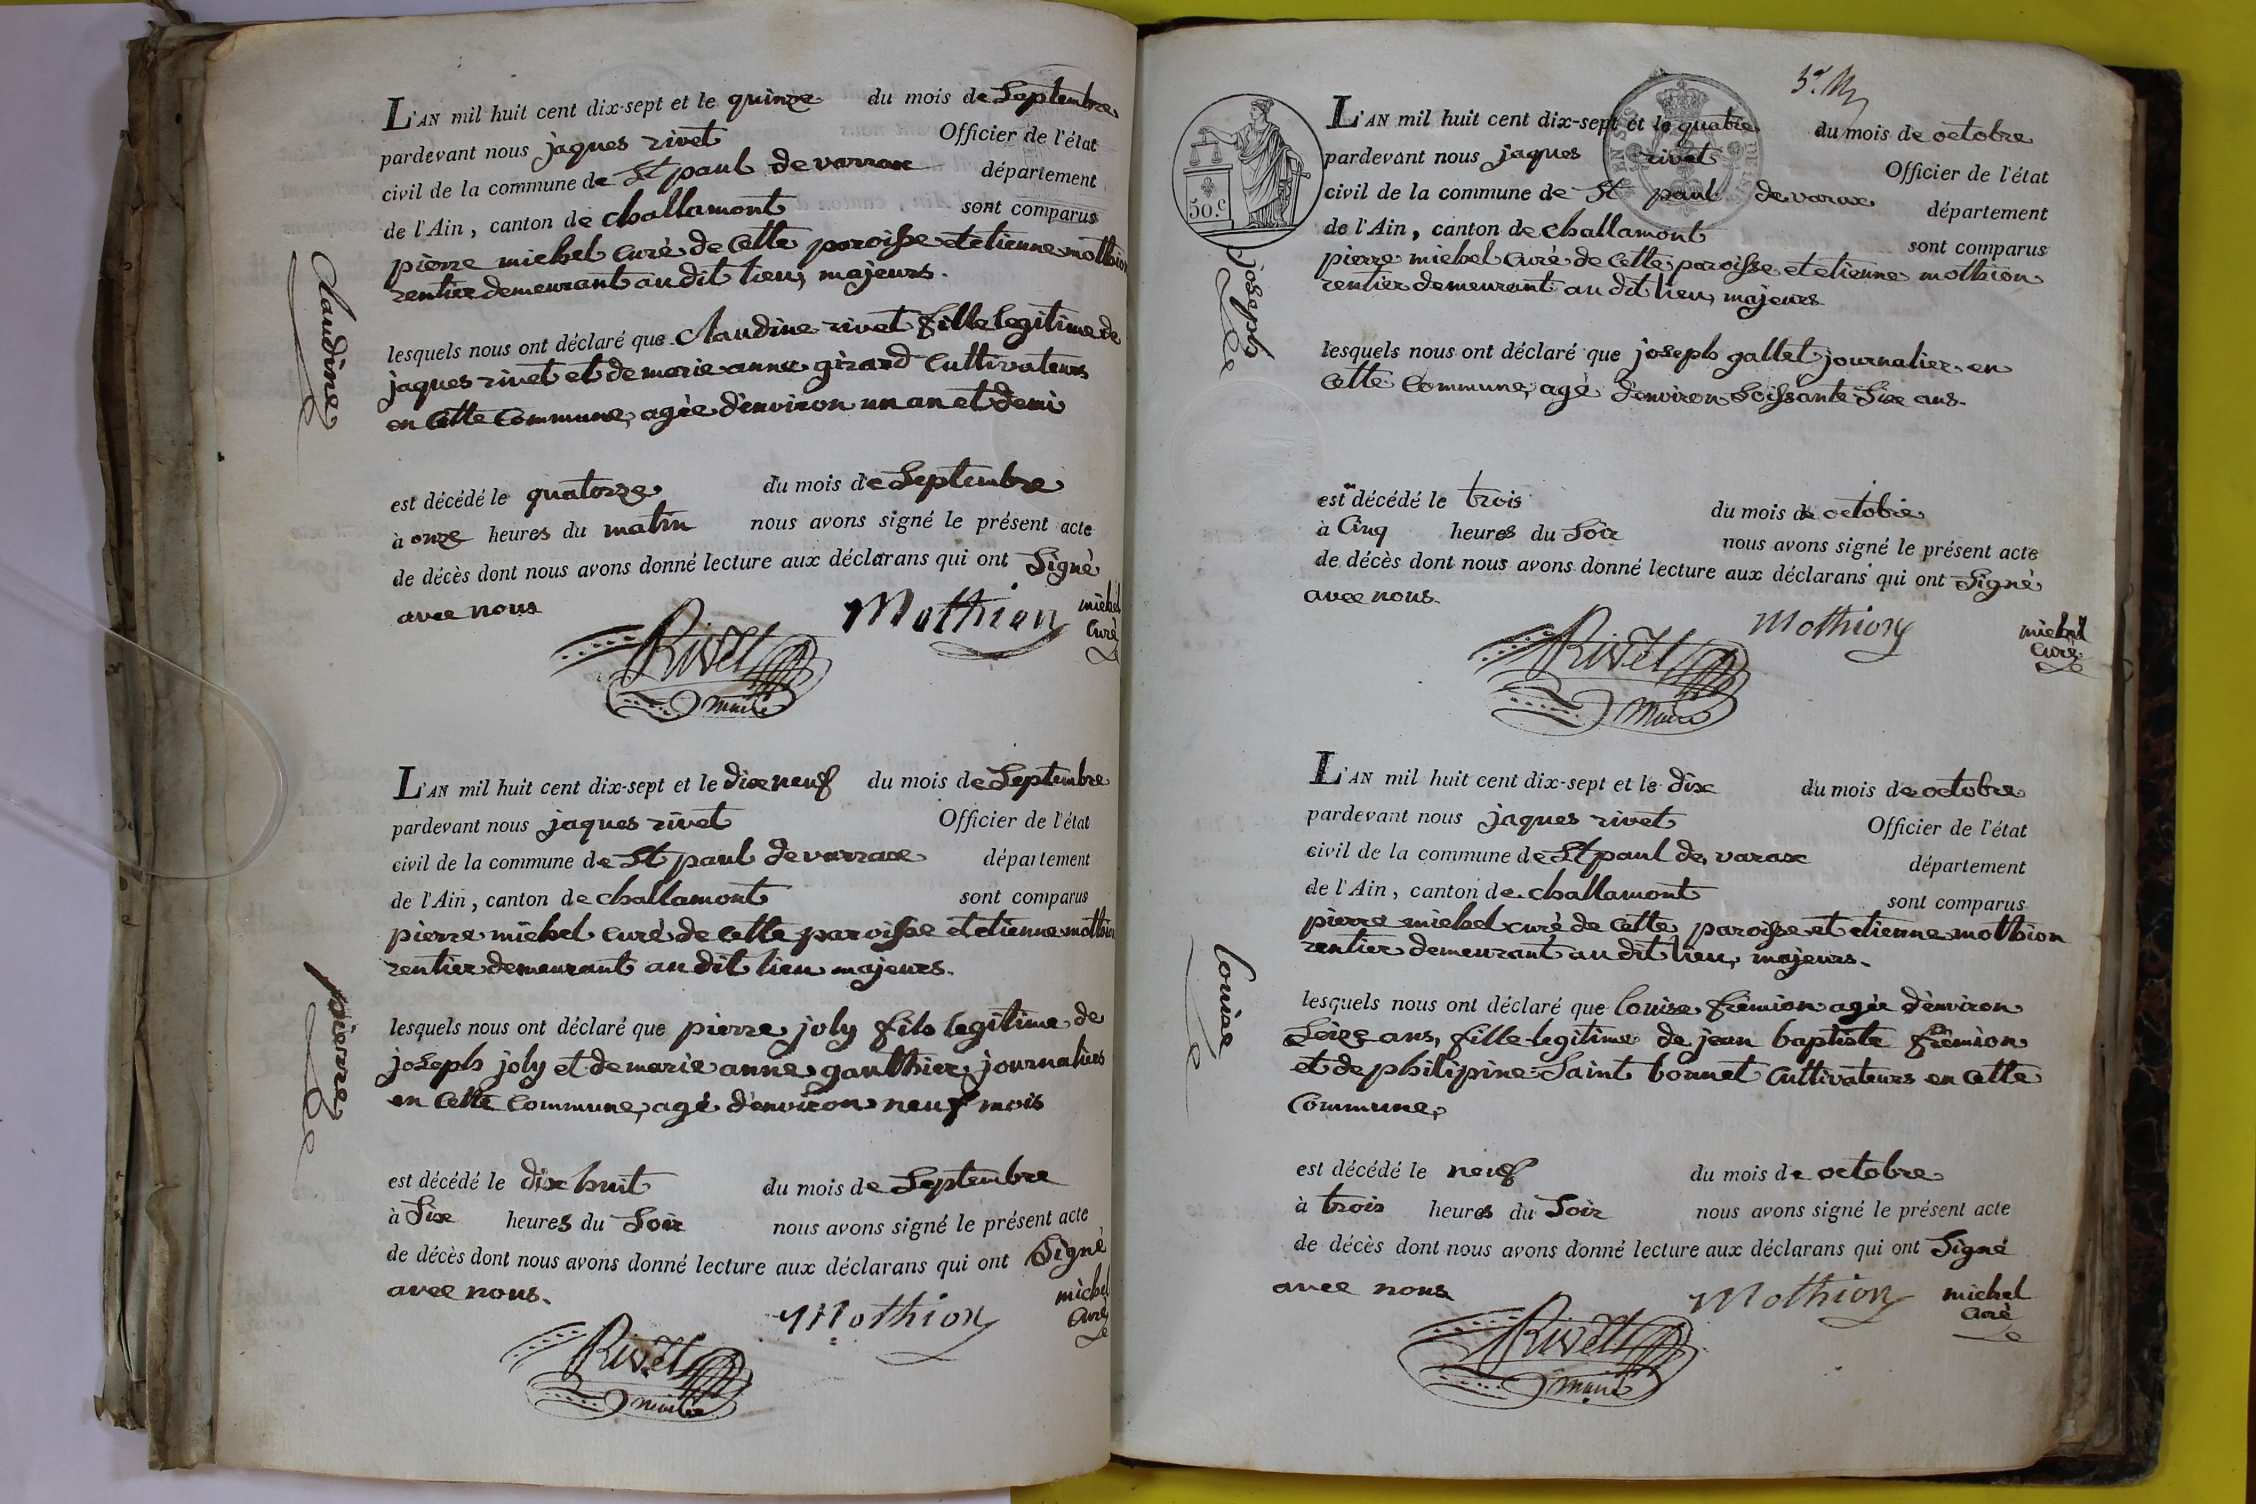 L'AN mil huit cent dix-sept et le quinze du mois de Septembre
pardevant nous jaques rivet Officier de l'état
civil de la commune de St paul de varrax département
de l'Ain, canton de challamont sont comparus
pierre michel curé de cette paroisse et etienne mothion
rentier demeurant au dit lieu, majeurs.
Claudine
lesquels nous ont déclaré que Claudine rivet fille legitime de
jaques rivet et de marie anne girard cultivateurs
en cette commune, agée d'environ un an et demi
est décédé le quatorze du mois de Septembre
à onze heures du matin nous avons signé le présent acte
de décès dont nous avons donné lecture aux déclarans qui ont Signé
avec nous
Mothion michel
curé
Rivet
maire
L'AN mil huit cent dix-sept et le dixe neuf du mois de Septembre
pardevant nous jaques rivet Officier de l'état
civil de la commune de St paul de varrax département
de l'Ain, canton de challamont sont comparus
pierre michel curé de cette paroisse et etienne mothion
rentier demeurant au dit lieu majeurs.
pierre
lesquels nous ont déclaré que pierre joly fils legitime de
joseph joly et de marie anne gauthier, journaliers
en cette commune, agé d'environ neuf mois
est décédé le dixe huit du mois de Septembre
à Six heures du Soir nous avons signé le présent acte
de décès dont nous avons donné lecture aux déclarans qui ont Signé
avec nous.
Mothion michel
curé
Rivet
maire
50.c
L'AN mil huit cent dix-sept et le quatre du mois de octobre
pardevant nous jaques rivet Officier de l'état
civil de la commune de St paul de varax département
de l'Ain, canton de challamont sont comparus
pierre michel curé de cette paroisse et etienne mothion
rentier demeurant au dit lieu, majeurs
joseph
lesquels nous ont déclaré que joseph gallet journalier en
cette commune, agé d'environ Soissante Six ans.
est décédé le trois du mois de octobre
à Cinq heures du Soir nous avons signé le présent acte
de décès dont nous avons donné lecture aux déclarans qui ont Signé
avec nous.
Mothion michel
curé
Rivet
maire
L'AN mil huit cent dix-sept et le dix du mois de octobre
pardevant nous jaques rivet Officier de l'état
civil de la commune de St paul de varax département
de l'Ain, canton de challamont sont comparus
pierre michel curé de cette paroisse et etienne mothion
rentier demeurant au dit lieu, majeurs.
louise
lesquels nous ont déclaré que louise frémion agée d'environ
Seize ans, fille legitime de jean baptiste frémion
et de philipine Saint bonnet cultivateurs en cette
commune,
est décédé le neuf du mois de octobre
à trois heures du Soir nous avons signé le présent acte
de décès dont nous avons donné lecture aux déclarans qui ont Signé
avec nous
Mothion michel
curé
Rivet
maire